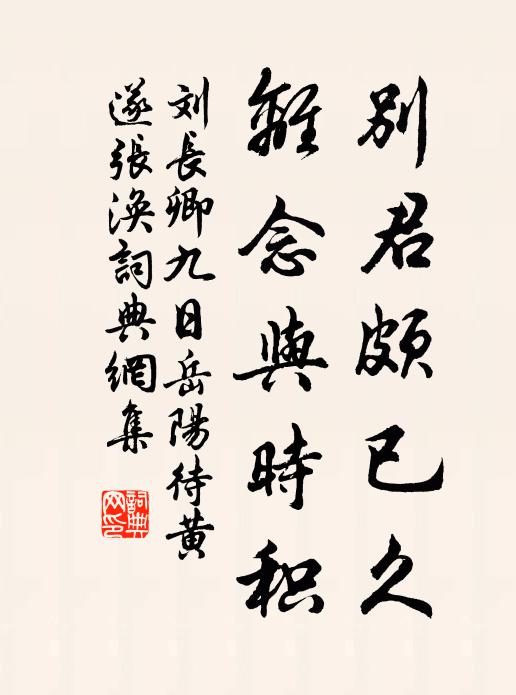 别君颇已久
離念與時积
刘長卿九日岳陽待黄
遂張涣詞典網集
詞典
网印